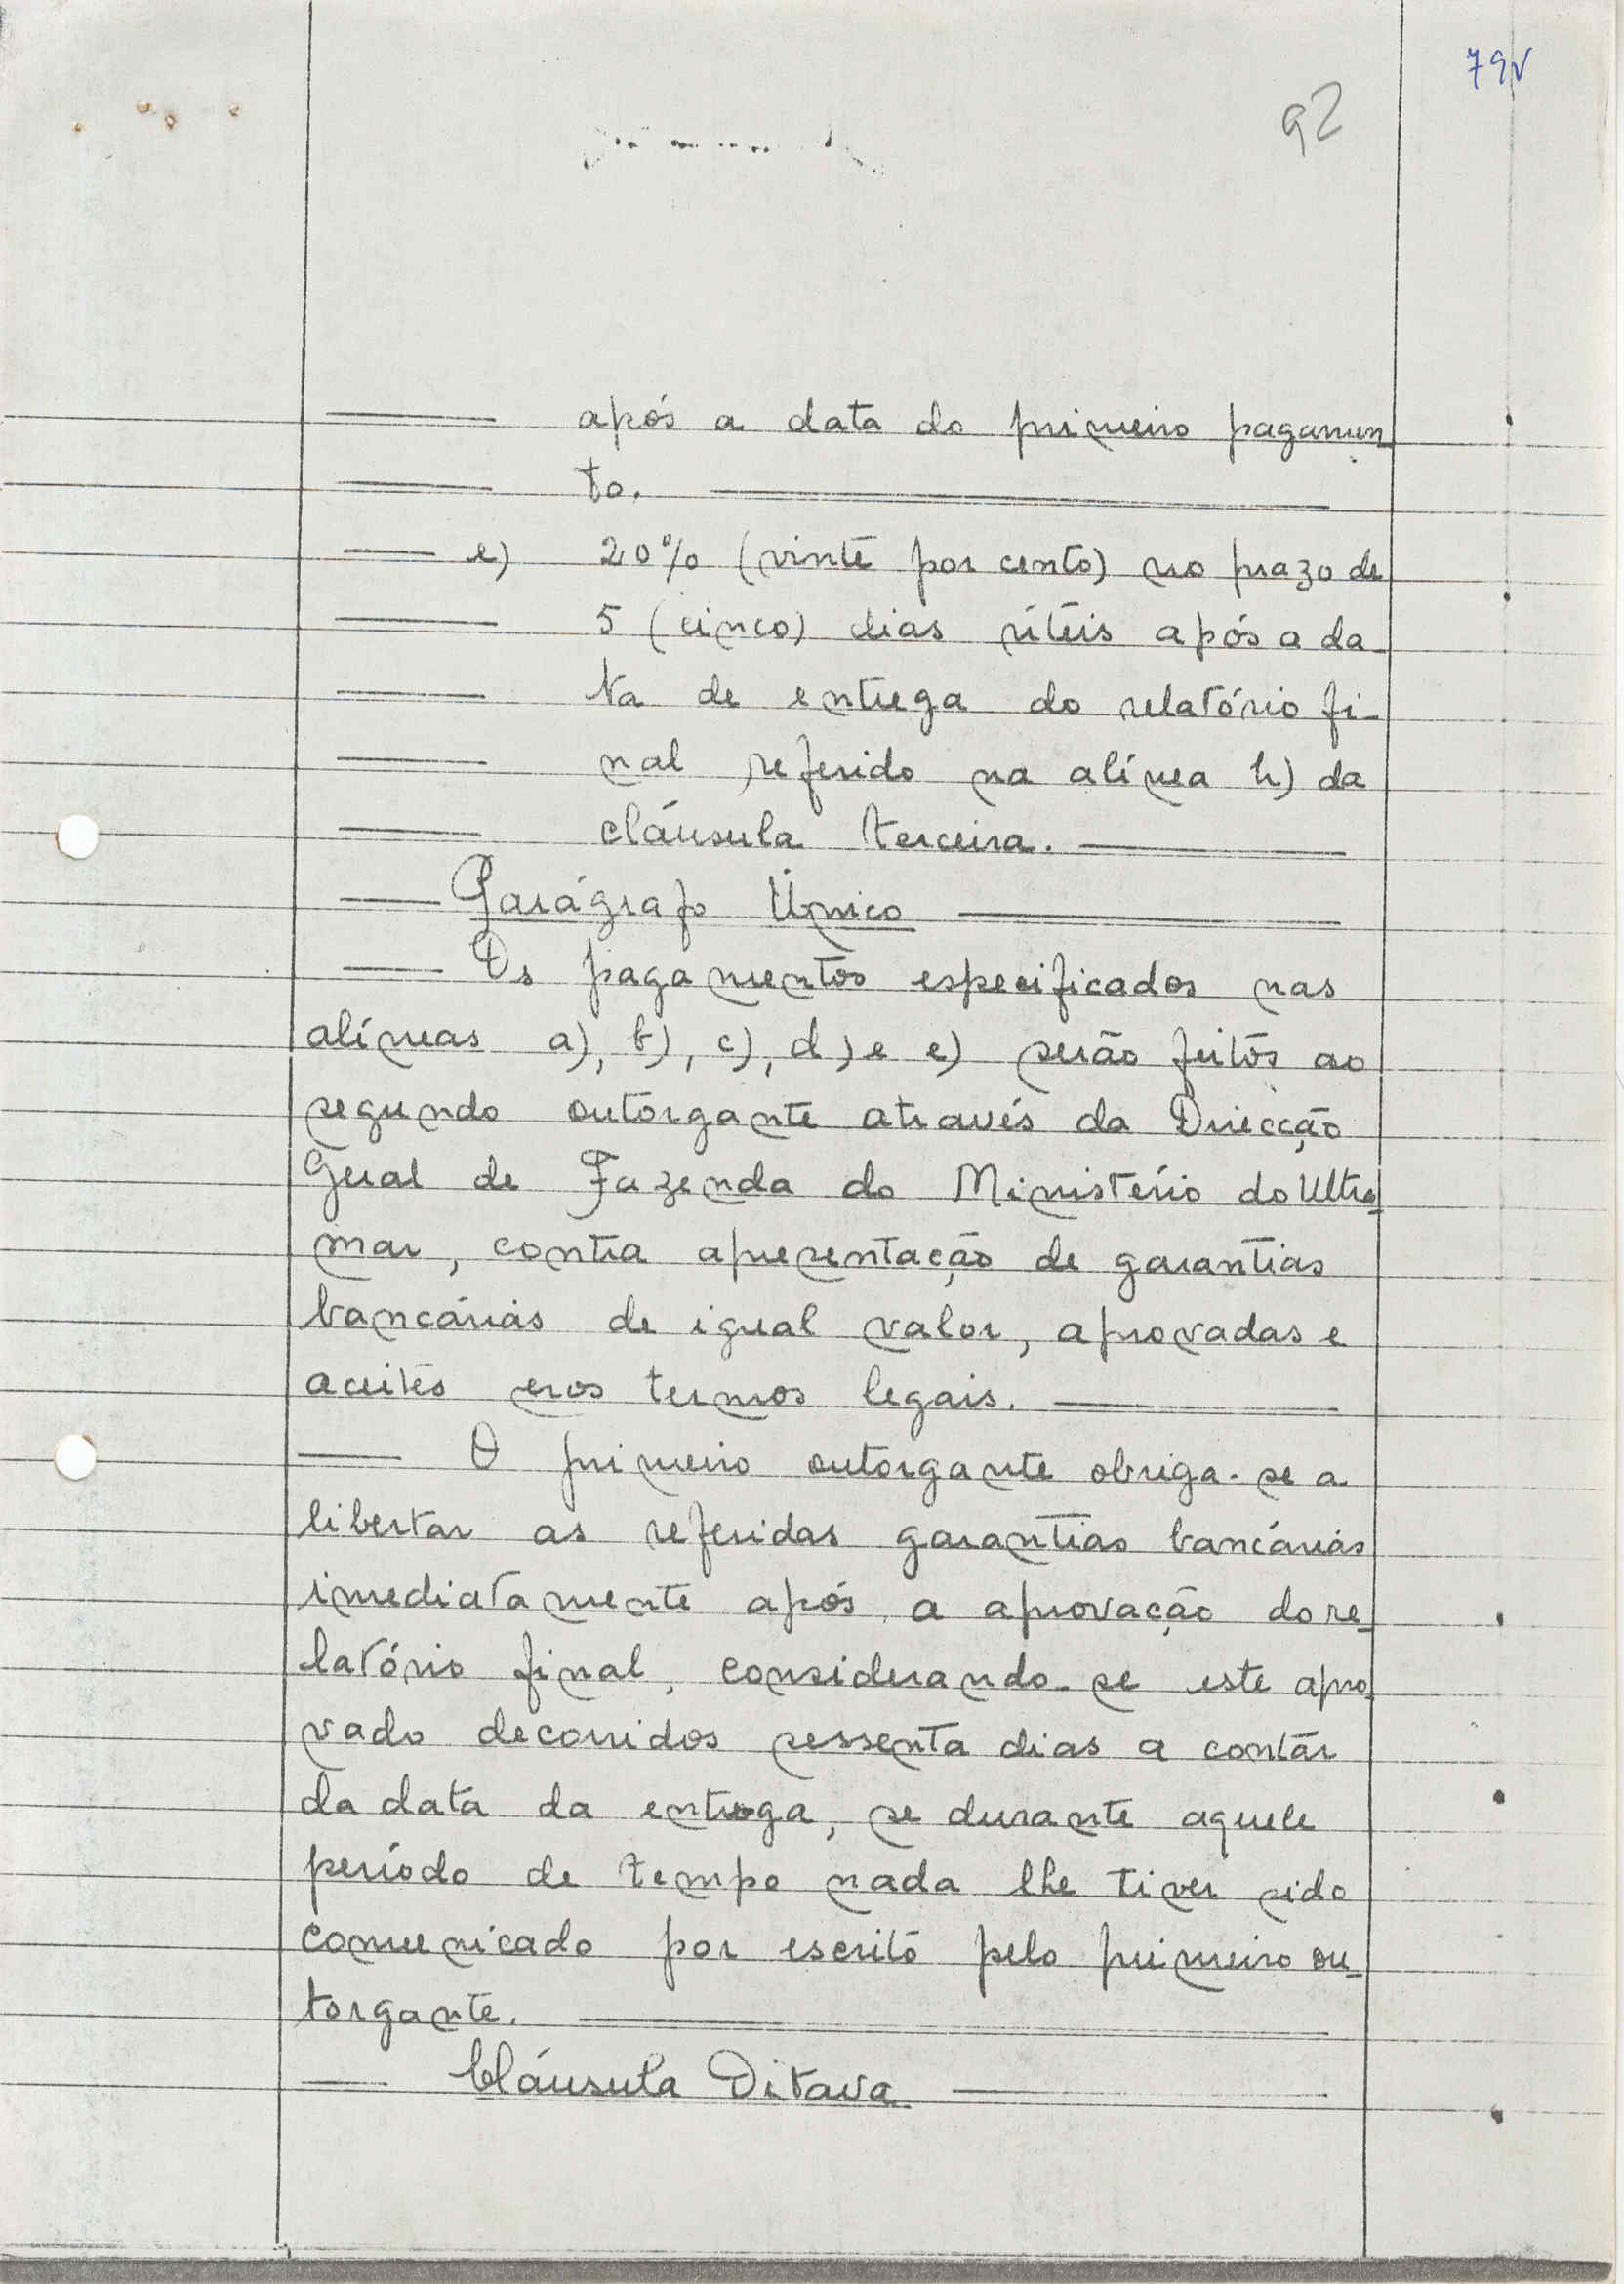 79v
92
após a data do primeiro pagamen-
to.
e) 20% (vinte por cento) no prazo de
5 (cinco) dias úteis após a da-
ta de entrega do relatório fi-
nal referido na alínea h) da
cláusula terceira.
Parágrafo Único
Os pagamentos especificados nas
alíneas a), b), c), d) e e) serão feitos ao
segundo outorgante através da Direcção
Geral de Fazenda do Ministério do Ultra-
mar, contra apresentação de garantias
bancárias de igual valor, aprovadas e
aceites nos termos legais.
O primeiro outorgante obriga-se a
libertar as referidas garantias bancárias
imediatamente após a aprovação do re-
latório final, considerando-se este apro-
vado decorridos sessenta dias a contar
da data da entrega, se durante aquele
período de tempo nada lhe tiver sido
comunicado por escrito pelo primeiro ou-
torgante.
Cláusula Oitava